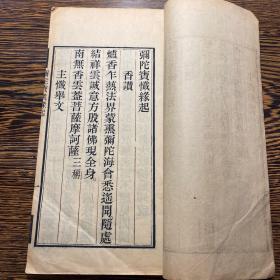 彌陀寶懺緣起
香讚
爐香乍爇法界蒙熏彌陀海會悉遙聞隨處
結祥雲誠意方殷諸佛現全身
南無香雲蓋菩薩摩訶薩三稱
主懺舉文